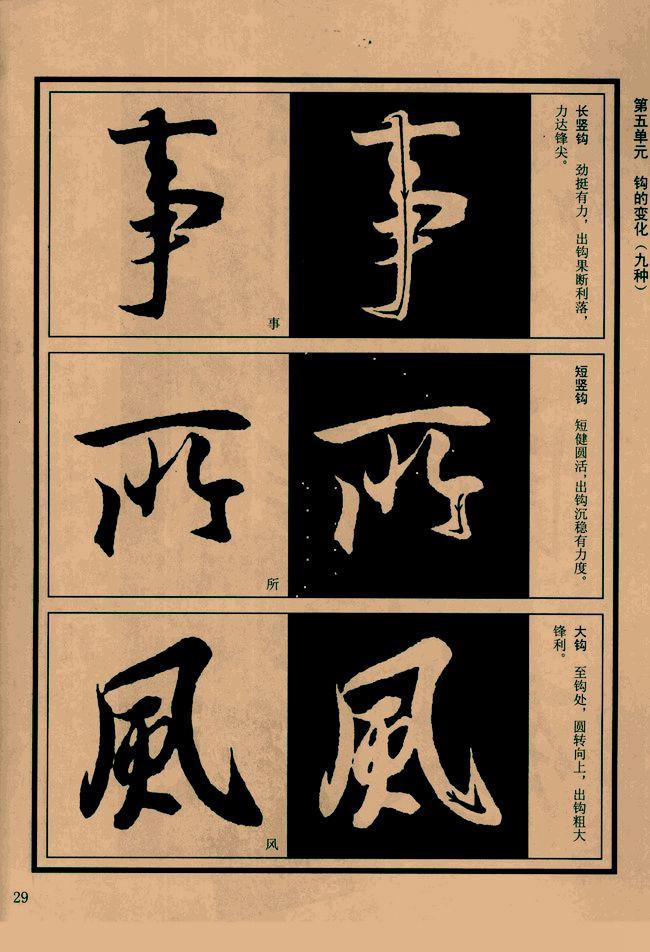 第五单元 钩的变化（九种）
长竖钩 劲挺有力，出钩果断利落，
力达锋尖。
事
事
事
短竖钩 短健圆活，出钩沉稳有力度。
所
所
所
大钩 至钩处，圆转向上，出钩粗大
锋利。
風
風
风
29